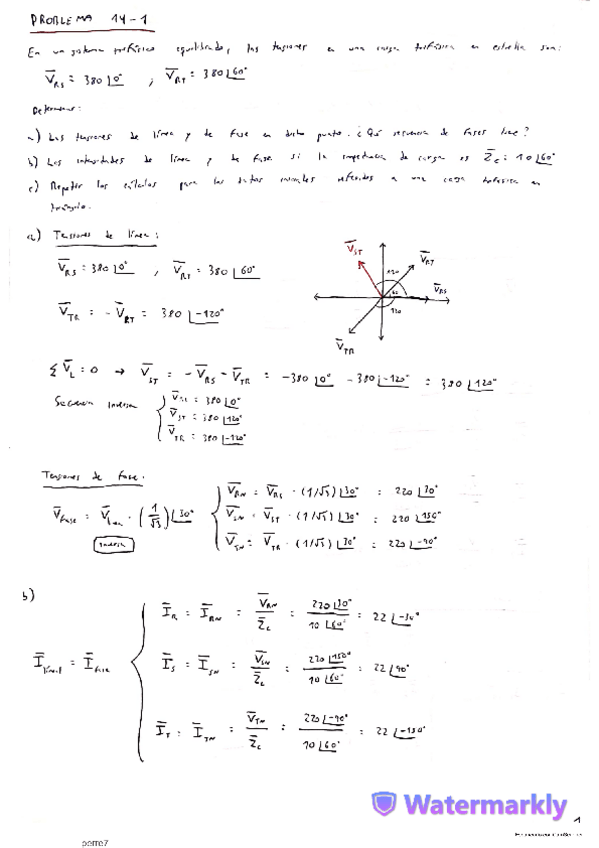 PROBLEMA 14-1
En un sistema trifásico equilibrado, las tensiones en una carga trifásica en estrella son:
V̅RS = 380 ∠0° , V̅RT = 380 ∠60°
Determinar:
a) Las tensiones de línea y de fase en dicho punto. ¿Qué secuencia de fases tiene?
b) Las intensidades de línea y de fase si la impedancia de carga es Z̅c = 10 ∠60°
c) Repetir los cálculos para los datos iniciales referidos a una carga trifásica en
triángulo.
a) Tensiones de línea:
V̅RS = 380 ∠0° , V̅RT = 380 ∠60°
V̅TR = -V̅RT = 380 ∠-120°
V̅ST
V̅RT
120
60
V̅RS
120
V̅TR
Σ V̅L = 0 → V̅ST = -V̅RS - V̅TR = -380 ∠0° - 380 ∠-120° = 380 ∠120°
Secuencia inversa
V̅RS = 380 ∠0°
V̅ST = 380 ∠120°
V̅TR = 380 ∠-120°
Tensiones de fase:
V̅fase = V̅línea · (1/√3) ∠30°
inversa
V̅RN = V̅RS · (1/√3) ∠30° = 220 ∠30°
V̅SN = V̅ST · (1/√3) ∠30° = 220 ∠150°
V̅TN = V̅TR · (1/√3) ∠30° = 220 ∠-90°
b)
I̅línea = I̅fase
I̅R = I̅RN = V̅RN / Z̅c = 220 ∠30° / 10 ∠60° = 22 ∠-30°
I̅S = I̅SN = V̅SN / Z̅c = 220 ∠150° / 10 ∠60° = 22 ∠90°
I̅T = I̅TN = V̅TN / Z̅c = 220 ∠-90° / 10 ∠60° = 22 ∠-150°
Watermarkly
1
perre7